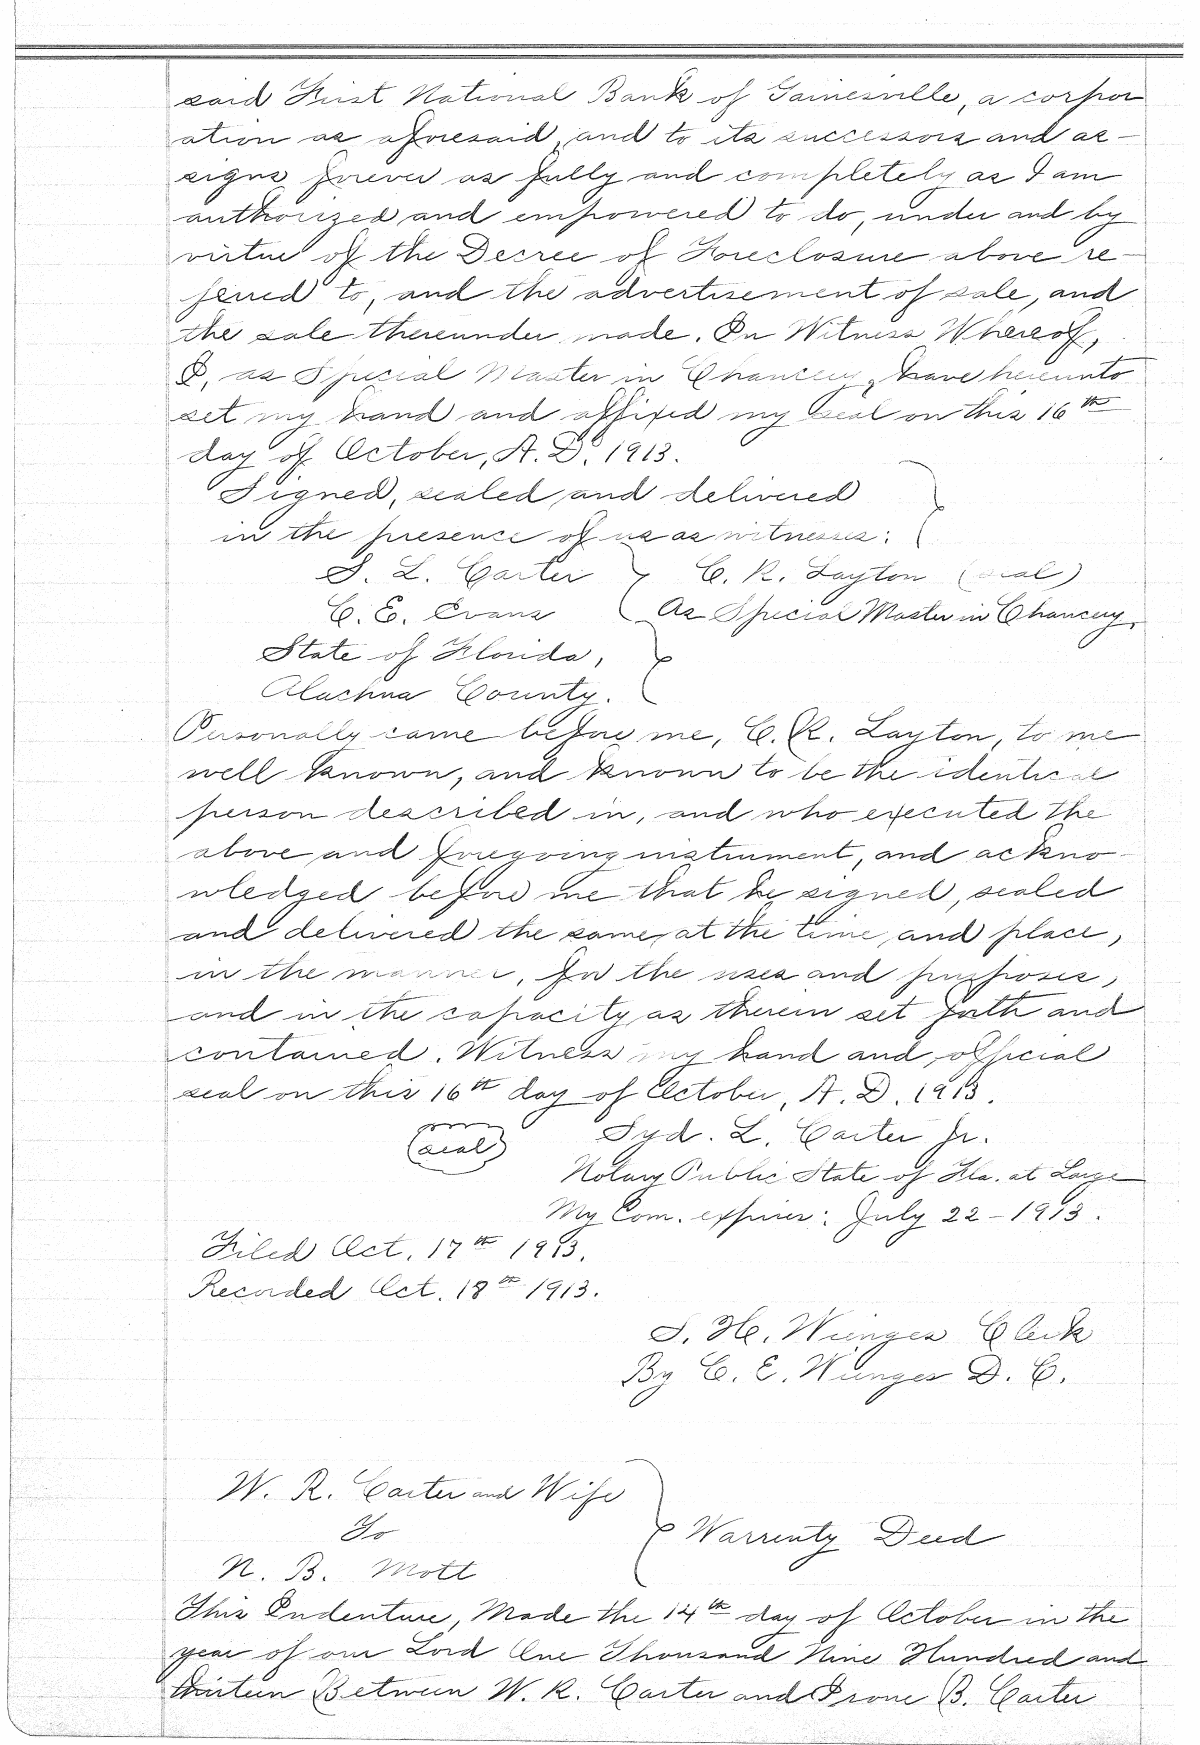 said First National Bank of Gainesville, a corpor
ation as aforesaid, and to its successors and as-
signs forever as fully and completely as I am
authorized and empowered to do, under and by
virtue of the Decree of Foreclosure above re-
ferred to, and the advertisement of sale, and
the sale thereunder made. In Witness Whereof,
I, as Special Master in Chancery, have hereunto
set my hand and affixed my seal on this 16th
day of October, A.D. 1913.
Signed, sealed and delivered
in the presence of us as witnesses:
S. L. Carter C. R. Layton (seal)
C. E. Evans As Special Master in Chancery.
State of Florida,
Alachua County.
Personally came before me, C. R. Layton, to me
well known, and known to be the identical
person described in, and who executed the
above and foregoing instrument, and ackno-
wledged before me that he signed, sealed
and delivered the same, at the time, and place,
in the manner, for the uses and purposes,
and in the capacity as therein set forth and
contained. Witness my hand and official
seal on this 16th day of October, A. D. 1913.
(seal) Syd. L. Carter Jr.
Notary Public State of Fla. at Large
My Com. expires: July 22-1913.
Filed Oct. 17th 1913.
Recorded Oct. 18th 1913.
S. H. Wienges Clerk
By C. E. Wienges D. C.
W. R. Carter and Wife
To Warrenty Deed
N. B. Mott
This Indenture, Made the 14th day of October in the
year of our Lord One Thousand Nine Hundred and
thirteen Between W. R. Carter and Irone B. Carter